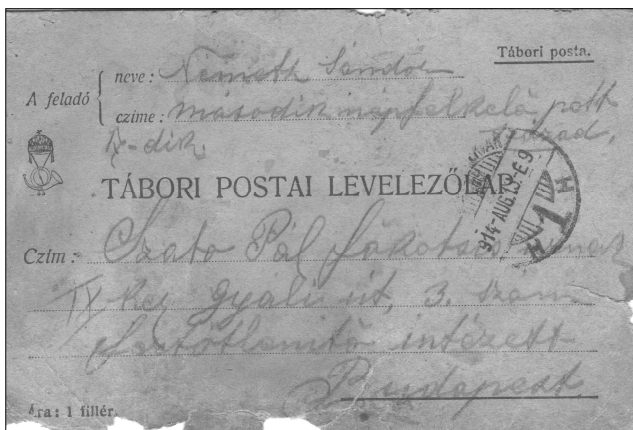 Tábori posta.
A feladó
neve: Németh Sándor
czíme: második népfelkelő pótt
század,
-dik
TÁBORI POSTAI LEVELEZŐLAP
914-AUG.13-E9
1
Czím: Szabo Pál
IX ker Gyáli út, 3. szám
intézett
Budapest.
Ára: 1 fillér.